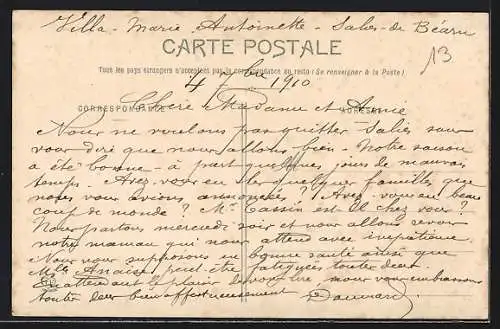 Villa - Marie - Antoinette - Salies-de Béarn
CARTE POSTALE
13
Tous les pays étrangers n'acceptent pas la correspondance au recto (Se renseigner à la Poste)
4 7bre 1910
CORRESPONDANCE ADRESSE
Chère Madame et Amie
Nous ne voulons pas quitter Salies sans
vous dire que nous allons bien - Notre saison
a été bonne - à part quelques jours de mauvais
temps. Avez-vous eu les quelques familles que
nous vous avions annoncées ? Avez-vous eu beau
coup de monde ? Mr Cassin est-il chez vous ?
Nous partons mercredi soir et nous allons revoir
notre maman qui nous attend avec impatience.
Nous vous supposons en bonne santé ainsi que
Mlle Anaïs peut-être fatiguées toutes deux.
En attendant le plaisir de vous lire, nous vous embrassons
toutes deux bien affectueusement